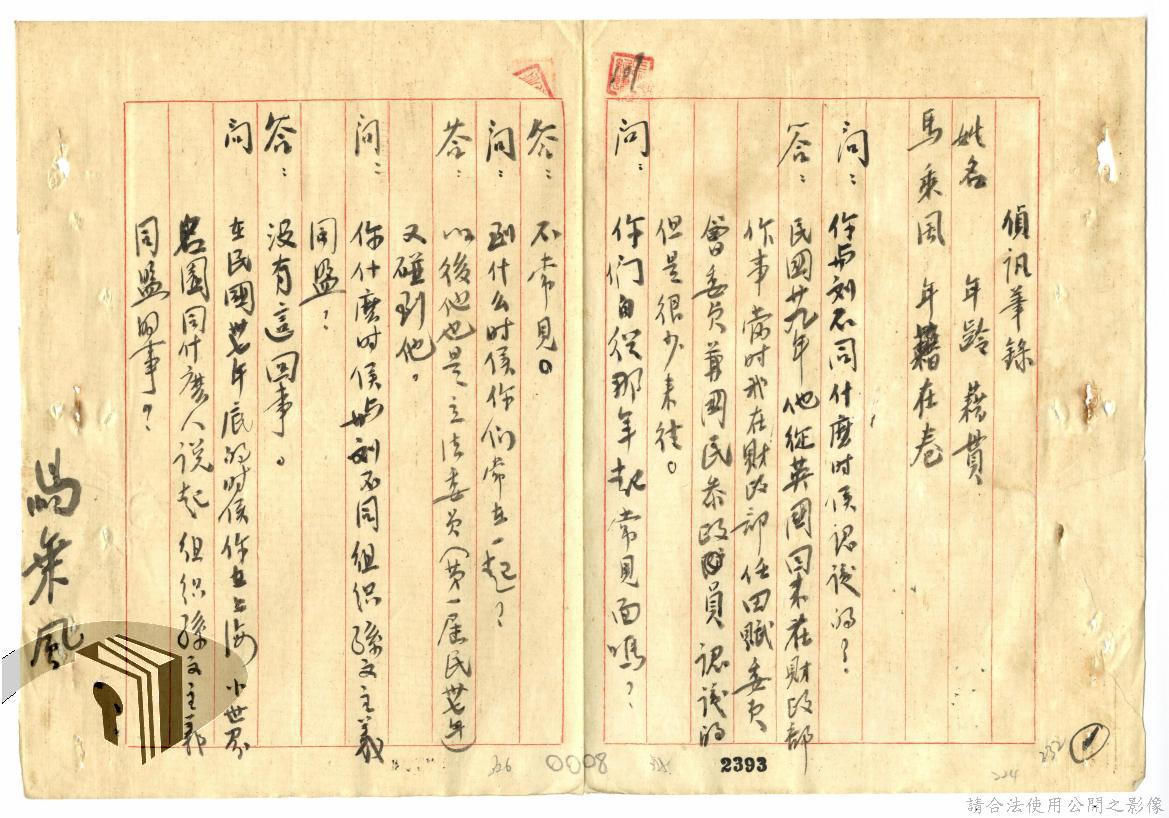 偵訊筆錄
姓名 年齡 籍貫
馬乘風 年籍在卷
問：你與刘不同什麼时候認識的？
答：民國廿九年他從英國回来在財政部
作事當时我在財政部任田賦委員
會委員兼國民参政員認識的
但是很少来往。
問：你们自從那年起常見面嗎？
答：不常見。
問：到什么时候你们常在一起？
答：以後他也是立法委員（第一届民卅七年）
又碰到他。
问：你什麼时候與刘不同组织孫文主義
同盟？
答：没有這回事。
问 在民國卅七年底的时候你在上海小世界
名園同什麽人説起组织孫文主義
同盟的事？
馮乘風
0008
2393
232
224
請合法使用公開之影像